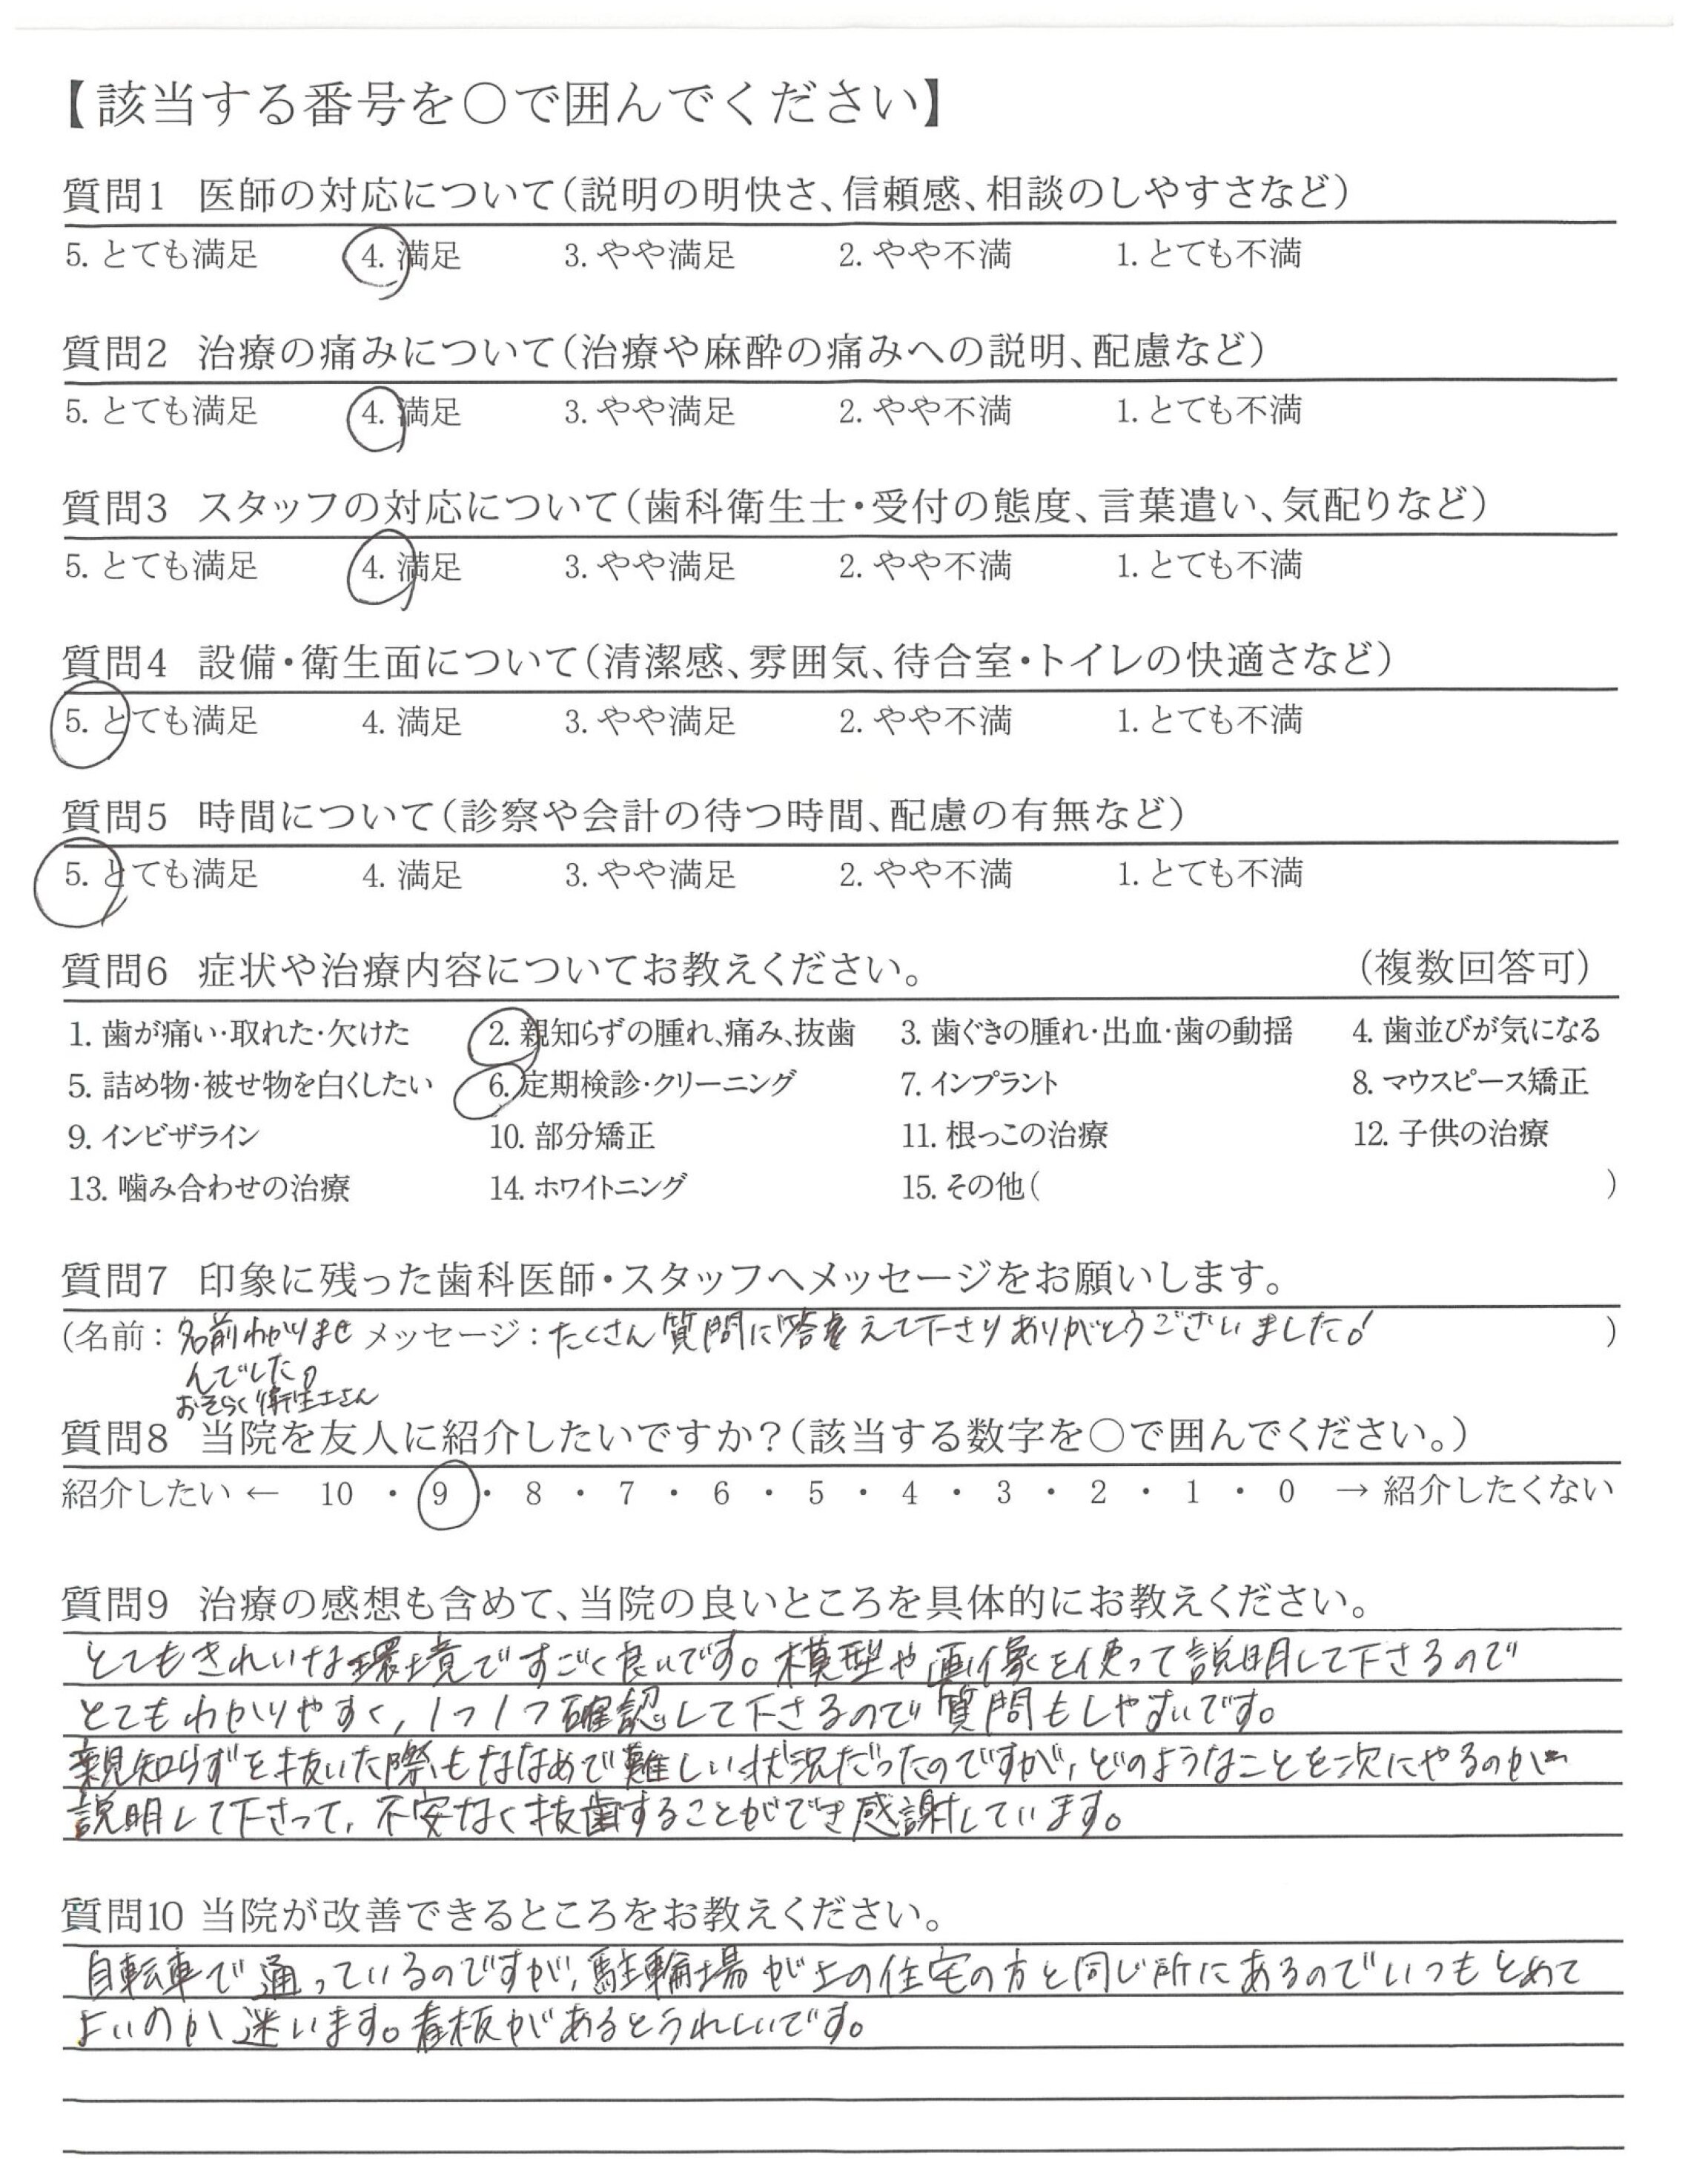 【該当する番号を○で囲んでください】
質問1 医師の対応について(説明の明快さ、信頼感、相談のしやすさなど)
5. とても満足 4. 満足 3. やや満足 2. やや不満 1. とても不満
質問2 治療の痛みについて(治療や麻酔の痛みへの説明、配慮など)
5. とても満足 4. 満足 3. やや満足 2. やや不満 1. とても不満
質問3 スタッフの対応について(歯科衛生士・受付の態度、言葉遣い、気配りなど)
5. とても満足 4. 満足 3. やや満足 2. やや不満 1. とても不満
質問4 設備・衛生面について(清潔感、雰囲気、待合室・トイレの快適さなど)
5. とても満足 4. 満足 3. やや満足 2. やや不満 1. とても不満
質問5 時間について(診察や会計の待つ時間、配慮の有無など)
5. とても満足 4. 満足 3. やや満足 2. やや不満 1. とても不満
質問6 症状や治療内容についてお教えください。 (複数回答可)
1. 歯が痛い・取れた・欠けた 2. 親知らずの腫れ、痛み、抜歯 3. 歯ぐきの腫れ・出血・歯の動揺 4. 歯並びが気になる
5. 詰め物・被せ物を白くしたい 6. 定期検診・クリーニング 7. インプラント 8. マウスピース矯正
9. インビザライン 10. 部分矯正 11. 根っこの治療 12. 子供の治療
13. 噛み合わせの治療 14. ホワイトニング 15. その他( )
質問7 印象に残った歯科医師・スタッフへメッセージをお願いします。
(名前：名前わかりませ メッセージ：たくさん質問に答えて下さりありがとうございました！ )
んでした。
おそらく衛生士さん
質問8 当院を友人に紹介したいですか？(該当する数字を○で囲んでください。)
紹介したい ← 10 ・ 9 ・ 8 ・ 7 ・ 6 ・ 5 ・ 4 ・ 3 ・ 2 ・ 1 ・ 0 → 紹介したくない
質問9 治療の感想も含めて、当院の良いところを具体的にお教えください。
とてもきれいな環境ですごく良いです。模型や画像を使って説明して下さるので
とてもわかりやすく、1つ1つ確認して下さるので質問もしやすいです。
親知らずを抜いた際もななめで難しい状況だったのですが、どのようなことを次にやるのか
説明して下さって、不安なく抜歯することができ感謝しています。
質問10 当院が改善できるところをお教えください。
自転車で通っているのですが、駐輪場が上の住宅の方と同じ所にあるのでいつもとめて
よいのか迷います。看板があるとうれしいです。